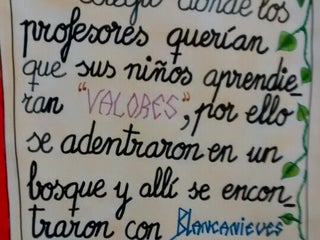 colegio donde los
profesores querían
que sus niños aprendie-
ran "VALORES", por ello
se adentraron en un
bosque y allí se encon-
traron con BLANCANIEVES